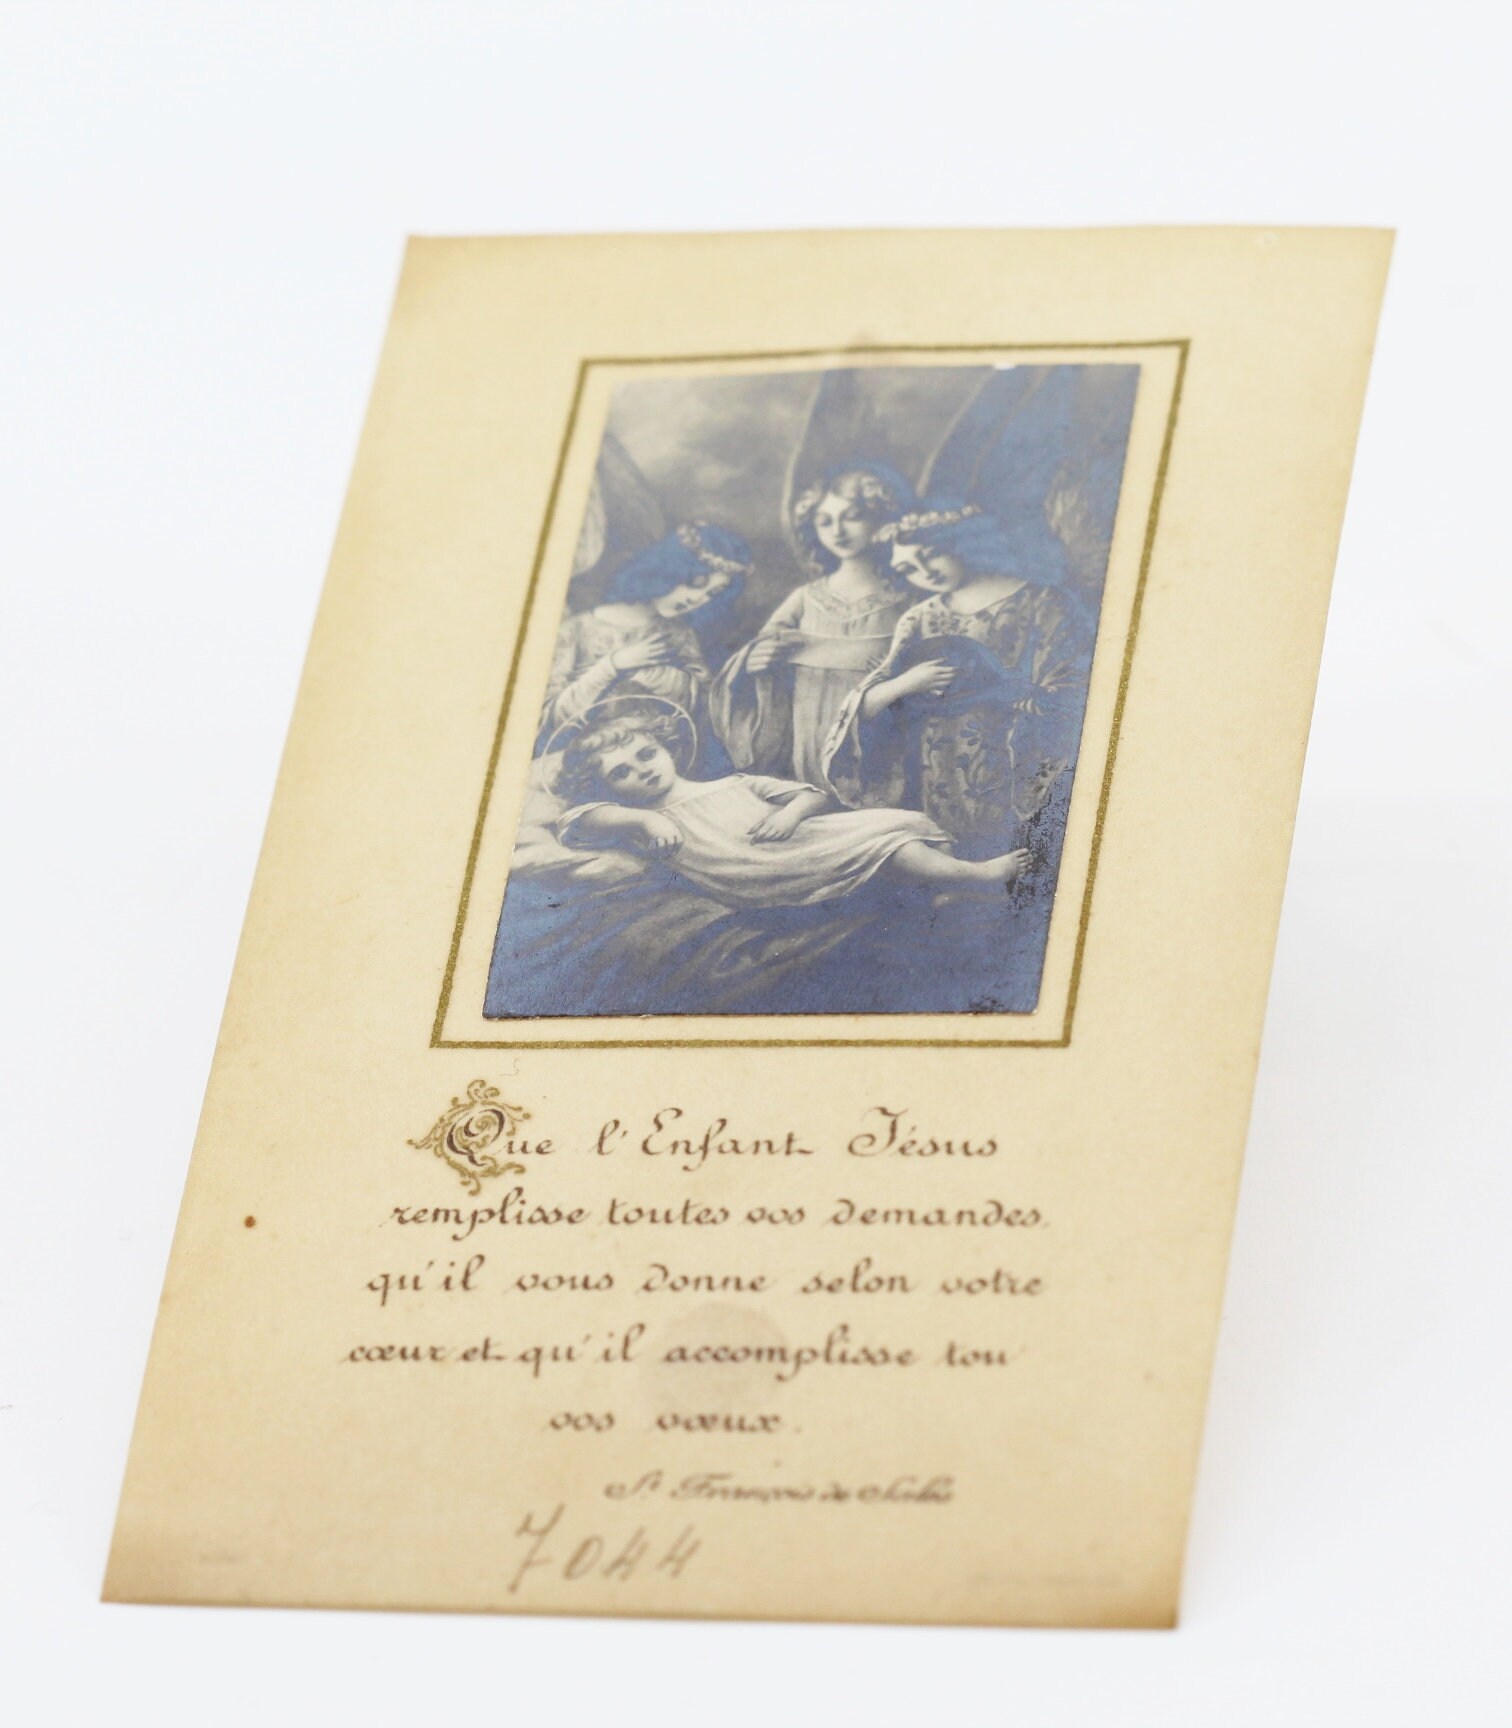 Que l'Enfant Jésus
remplisse toutes vos demandes,
qu'il vous donne selon votre
cœur et qu'il accomplisse tou
vos vœux.
St François de Sales
7044